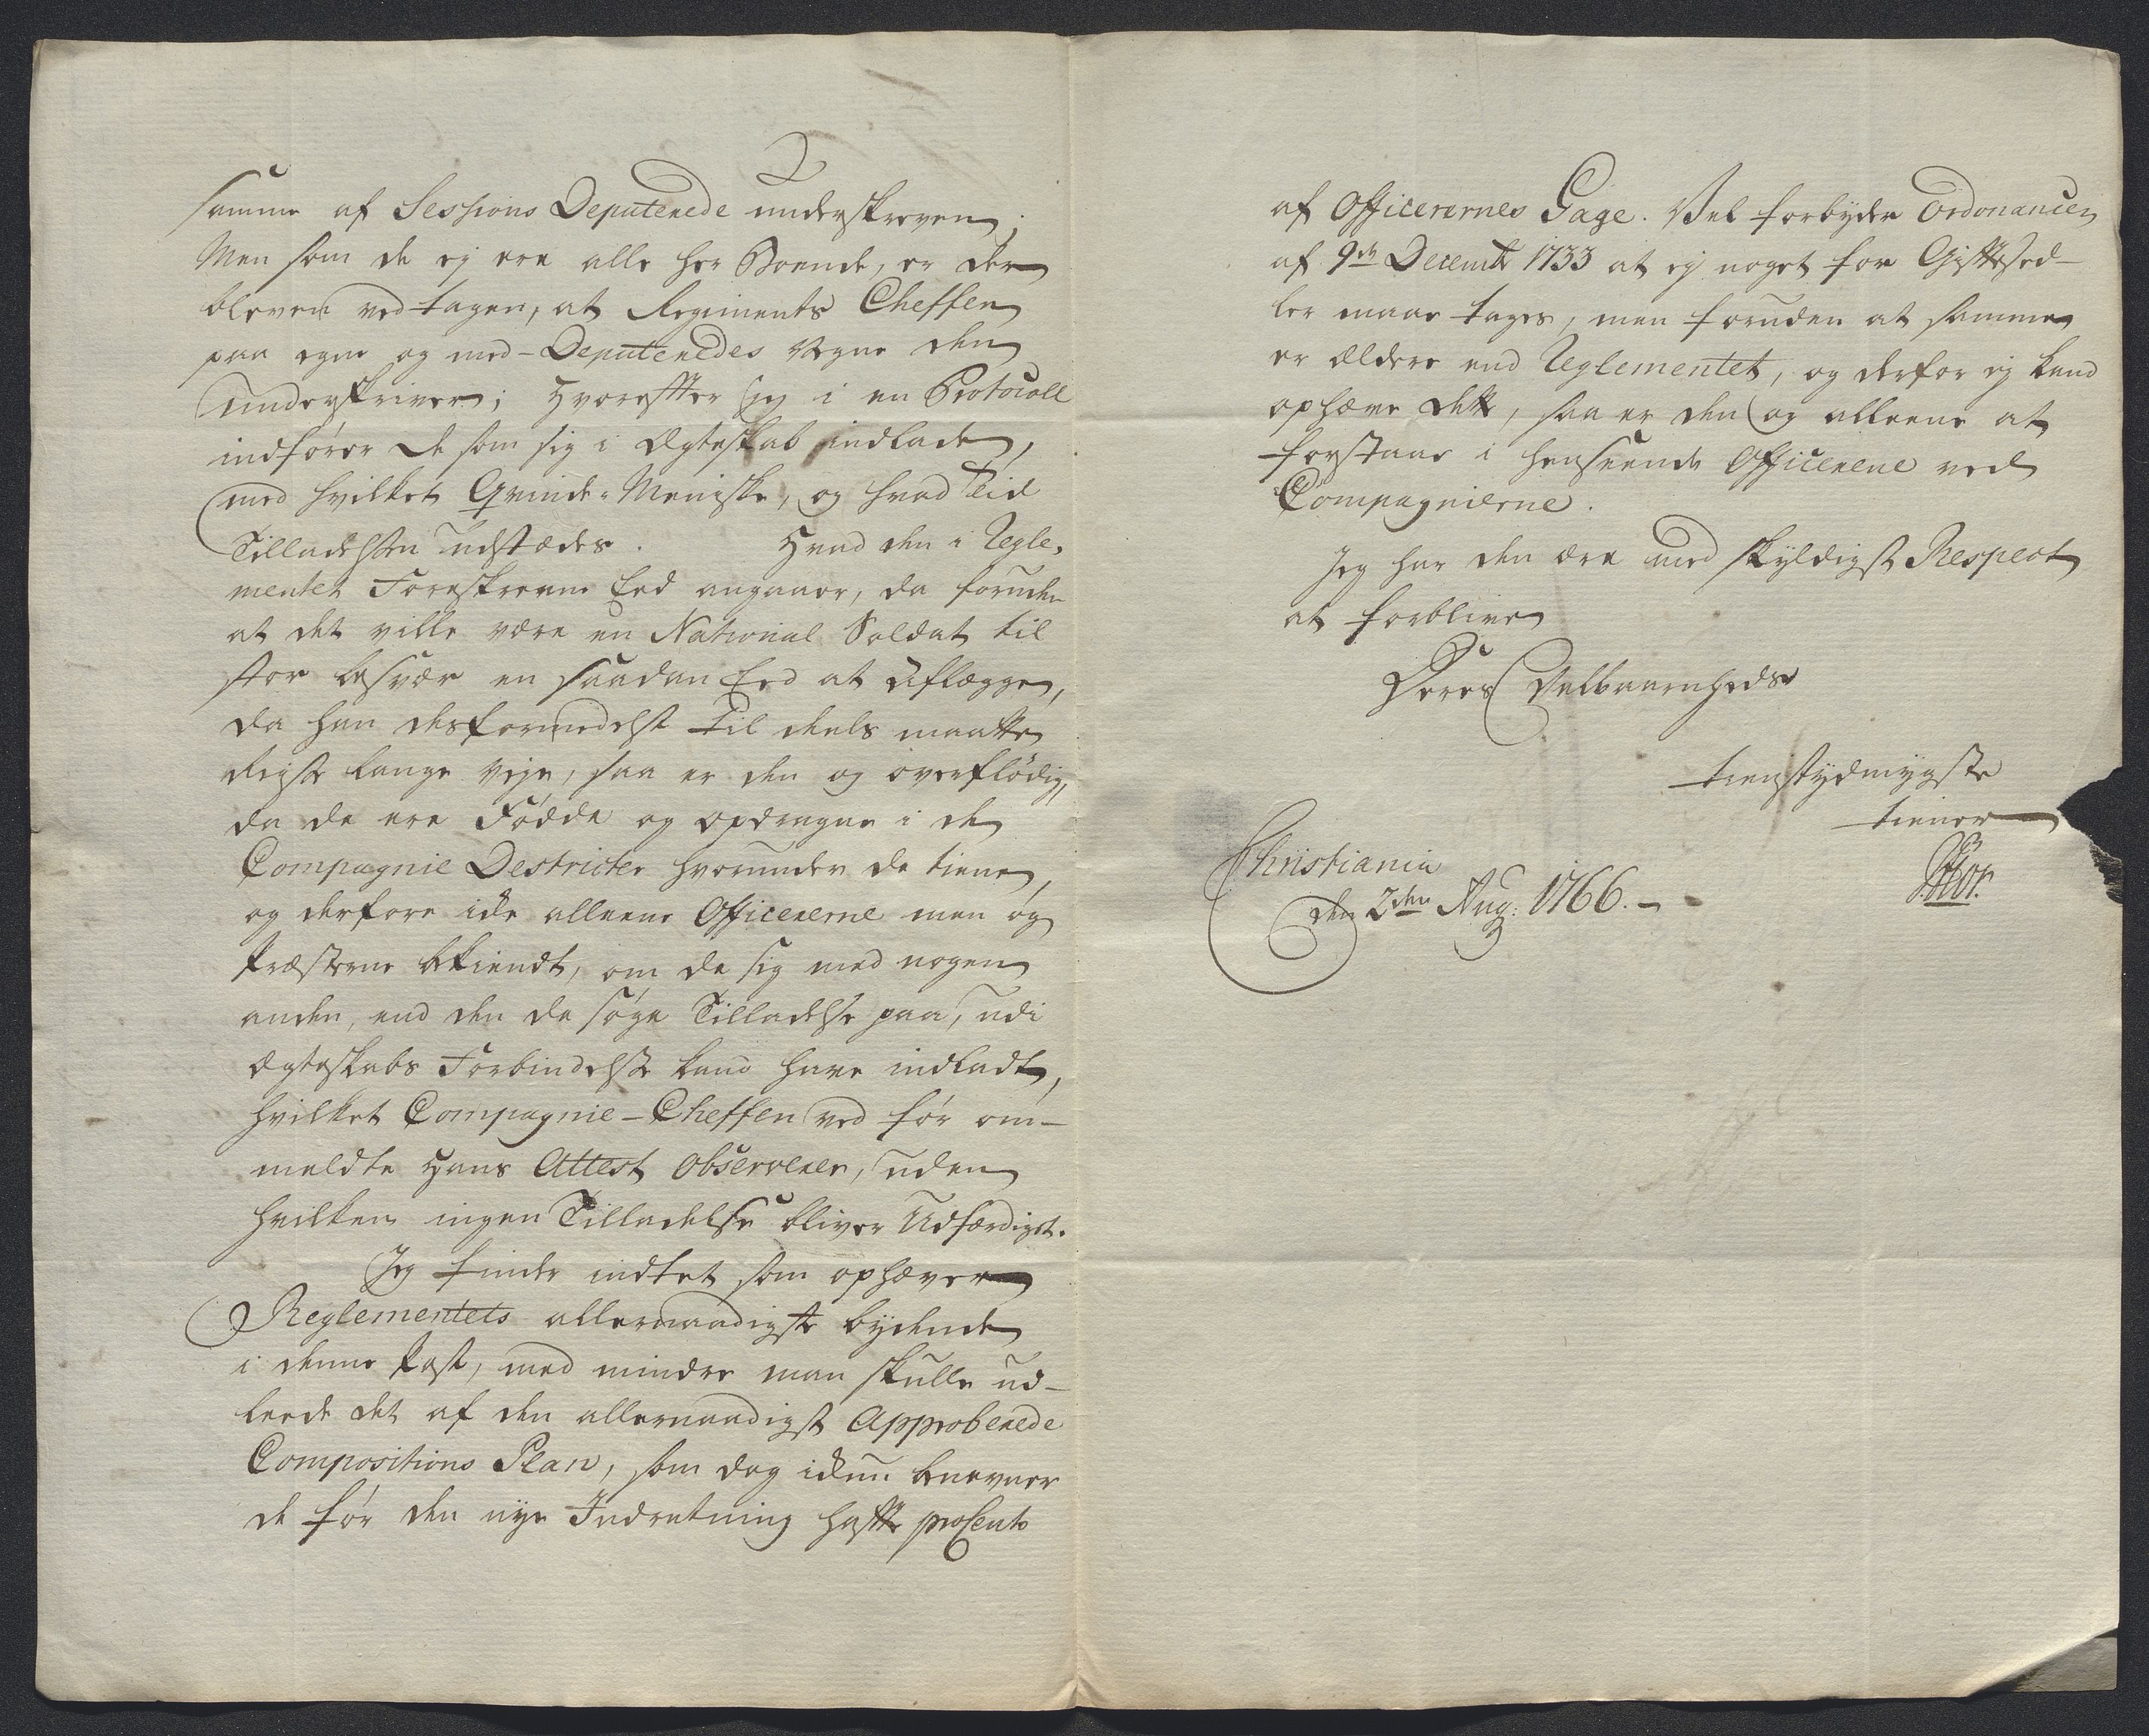 samme af Sessions Deputerede underskreven;
Men som de ej ere alle her Boende, er der
bleven ved tagen, at Regiments Cheffen
paa egne og med-Deputeredes Vegne den
underskriver; Hvorefter jeg i en Protocoll
indfører de som sig i Ægteskab indlade,
med hvilket Qvinde-Meniske, og hvad Tiid
Tilladelsen udstædes. Hvad den i Regle-
mentet Foreskrevne Eed angaaer, da foruden
at det ville være en National Soldat til
stor besvær en saadan Eed at aflægge,
da han desformedelst til deels maatte
Reise lange Veje, saa er den og overflødig,
da de ere Fødde og opdragne i de
Compagnie Destricter hvorunder de tiene,
og derfore icke alleene Officererne men og
Præsterne bekiendt, om de sig med nogen
anden, end den de søge Tilladelse paa, udi
Ægteskabs Forbindelse kand have indladt,
hvilket Compagnie-Cheffen ved før om-
meldte Hans Attest observerer, uden
hvilken ingen Tilladelse bliver Udfærdiget.
Jeg finder indtet som ophæver
Reglementets allernaadigste bydende
i denne Post, med mindre man skulle ud-
leede det af den allernaadigst Approberede
Compositions Plan, som dog ickun benævner
de før den nye Indretning hafte proCento
af Officerernes Gage. Vel forbyder Ordonancen
af 9de Decembr 1733 at ej noget for Giftesed-
ler maae tages, men foruden at samme
er ældere end Reglementet, og derfor ej kand
ophæve dette, saa er den og alleene at
forstaae i henseende Officerene ved
Compagnierne.
Jeg har den ære med skyldigst Respect
at forblive
Deres Velbaarenheds
tienstydmygste
tiener
Christiania
den 2den Aug: 1766.